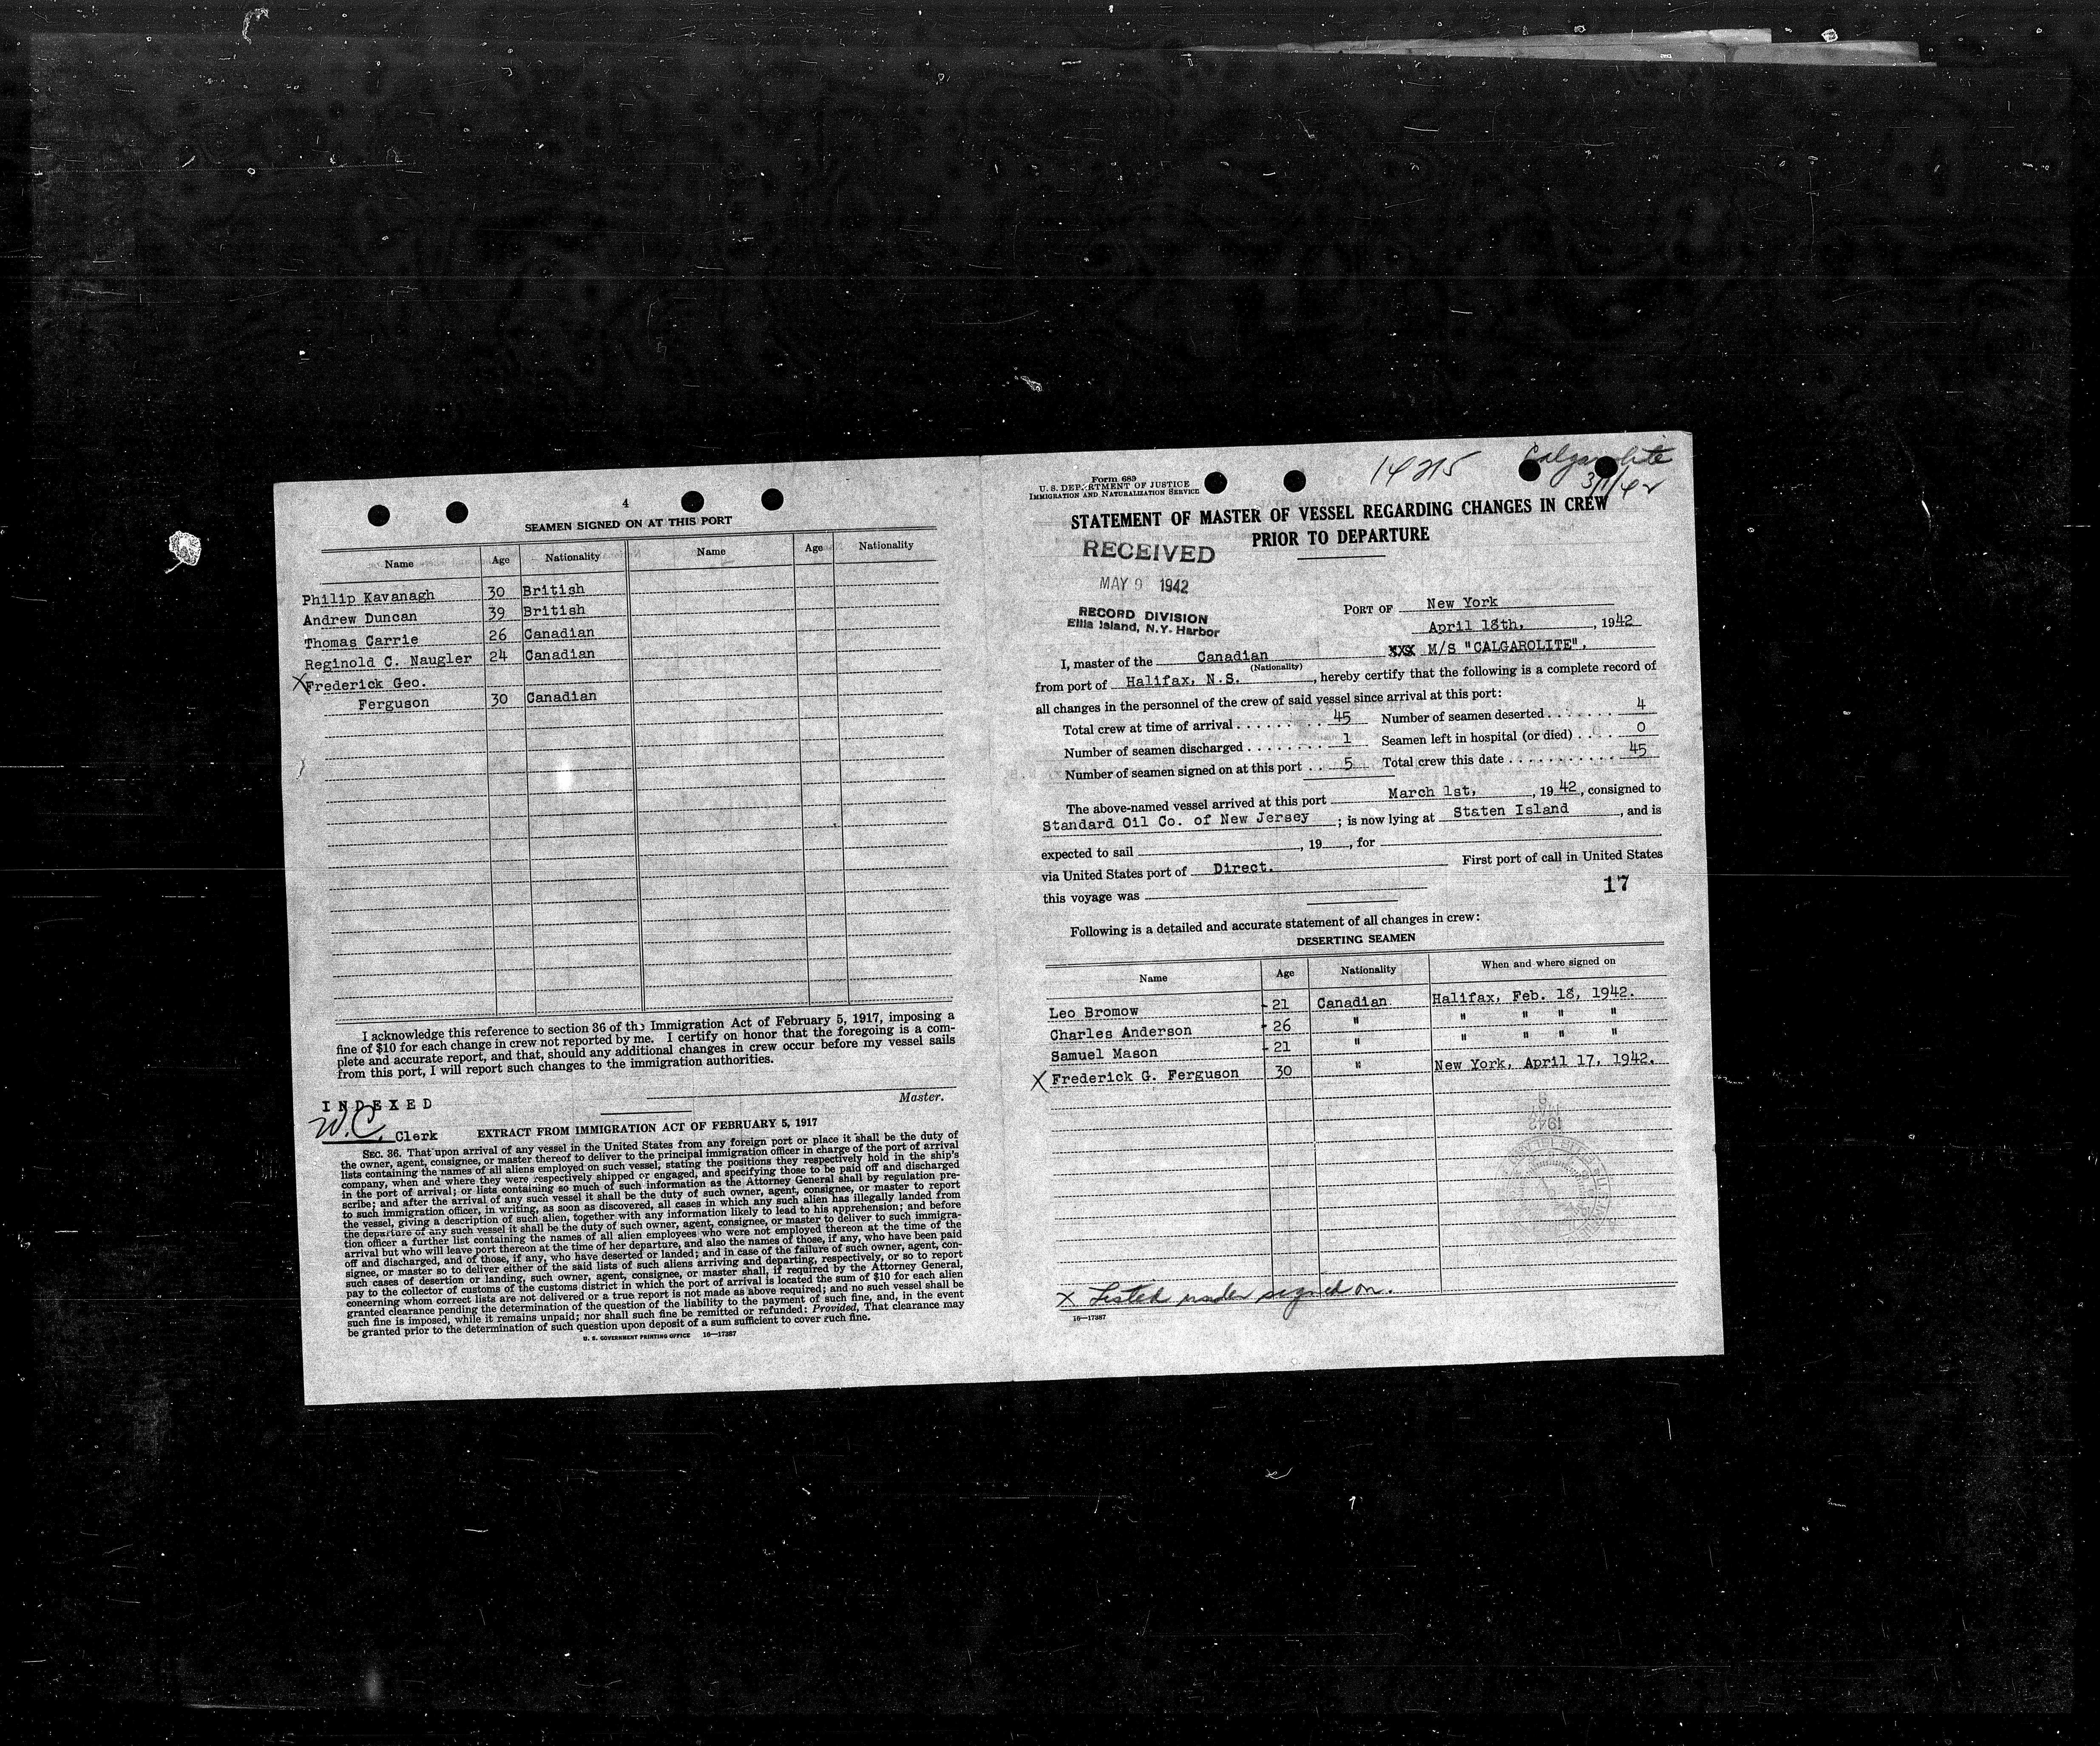 4
SEAMEN SIGNED ON AT THIS PORT
Name Age Nationality Name Age Nationality
Philip Kavanagh 30 British
Andrew Duncan 39 British
Thomas Carrie 26 Canadian
Reginold C. Naugler 24 Canadian
X Frederick Geo.
Ferguson 30 Canadian
I acknowledge this reference to section 36 of the Immigration Act of February 5, 1917, imposing a
fine of $10 for each change in crew not reported by me. I certify on honor that the foregoing is a com-
plete and accurate report, and that, should any additional changes in crew occur before my vessel sails
from this port, I will report such changes to the immigration authorities.
Master.
INDEXED
W.C. Clerk
EXTRACT FROM IMMIGRATION ACT OF FEBRUARY 5, 1917
SEC. 36. That upon arrival of any vessel in the United States from any foreign port or place it shall be the duty of
the owner, agent, consignee, or master thereof to deliver to the principal immigration officer in charge of the port of arrival
lists containing the names of all aliens employed on such vessel, stating the positions they respectively hold in the ship's
company, when and where they were respectively shipped or engaged, and specifying those to be paid off and discharged
in the port of arrival; or lists containing so much of such information as the Attorney General shall by regulation pre-
scribe; and after the arrival of any such vessel it shall be the duty of such owner, agent, consignee, or master to report
to such immigration officer, in writing, as soon as discovered, all cases in which any such alien has illegally landed from
the vessel, giving a description of such alien, together with any information likely to lead to his apprehension; and before
the departure of any such vessel it shall be the duty of such owner, agent, consignee, or master to deliver to such immigra-
tion officer a further list containing the names of all alien employees who were not employed thereon at the time of the
arrival but who will leave port thereon at the time of her departure, and also the names of those, if any, who have been paid
off and discharged, and of those, if any, who have deserted or landed; and in case of the failure of such owner, agent, con-
signee, or master so to deliver either of the said lists of such aliens arriving and departing, respectively, or so to report
such cases of desertion or landing, such owner, agent, consignee, or master shall, if required by the Attorney General,
pay to the collector of customs of the customs district in which the port of arrival is located the sum of $10 for each alien
concerning whom correct lists are not delivered or a true report is not made as above required; and no such vessel shall be
granted clearance pending the determination of the question of the liability to the payment of such fine, and, in the event
such fine is imposed, while it remains unpaid; nor shall such fine be remitted or refunded: Provided, That clearance may
be granted prior to the determination of such question upon deposit of a sum sufficient to cover such fine.
U. S. GOVERNMENT PRINTING OFFICE 16—17387
Form 689
U. S. DEPARTMENT OF JUSTICE
IMMIGRATION AND NATURALIZATION SERVICE
14215 Calgarolite
3/1/42
STATEMENT OF MASTER OF VESSEL REGARDING CHANGES IN CREW
PRIOR TO DEPARTURE
RECEIVED
MAY 9 1942
RECORD DIVISION
Ellis Island, N.Y. Harbor
PORT OF New York
April 18th, , 1942
I, master of the Canadian XXX M/S "CALGAROLITE",
(Nationality)
from port of Halifax, N.S. , hereby certify that the following is a complete record of
all changes in the personnel of the crew of said vessel since arrival at this port:
Total crew at time of arrival 45 Number of seamen deserted 4
Number of seamen discharged 1 Seamen left in hospital (or died) 0
Number of seamen signed on at this port 5 Total crew this date 45
The above-named vessel arrived at this port March 1st, , 1942, consigned to
Standard Oil Co. of New Jersey ; is now lying at Staten Island , and is
expected to sail , 19 , for
via United States port of Direct. First port of call in United States
this voyage was 17
Following is a detailed and accurate statement of all changes in crew:
DESERTING SEAMEN
Name Age Nationality When and where signed on
Leo Bromow - 21 Canadian Halifax, Feb. 18, 1942.
Charles Anderson - 26 " " " " "
Samuel Mason - 21 " " " " "
X Frederick G. Ferguson 30 " New York, April 17, 1942.
X Listed under signed on.
16—17387